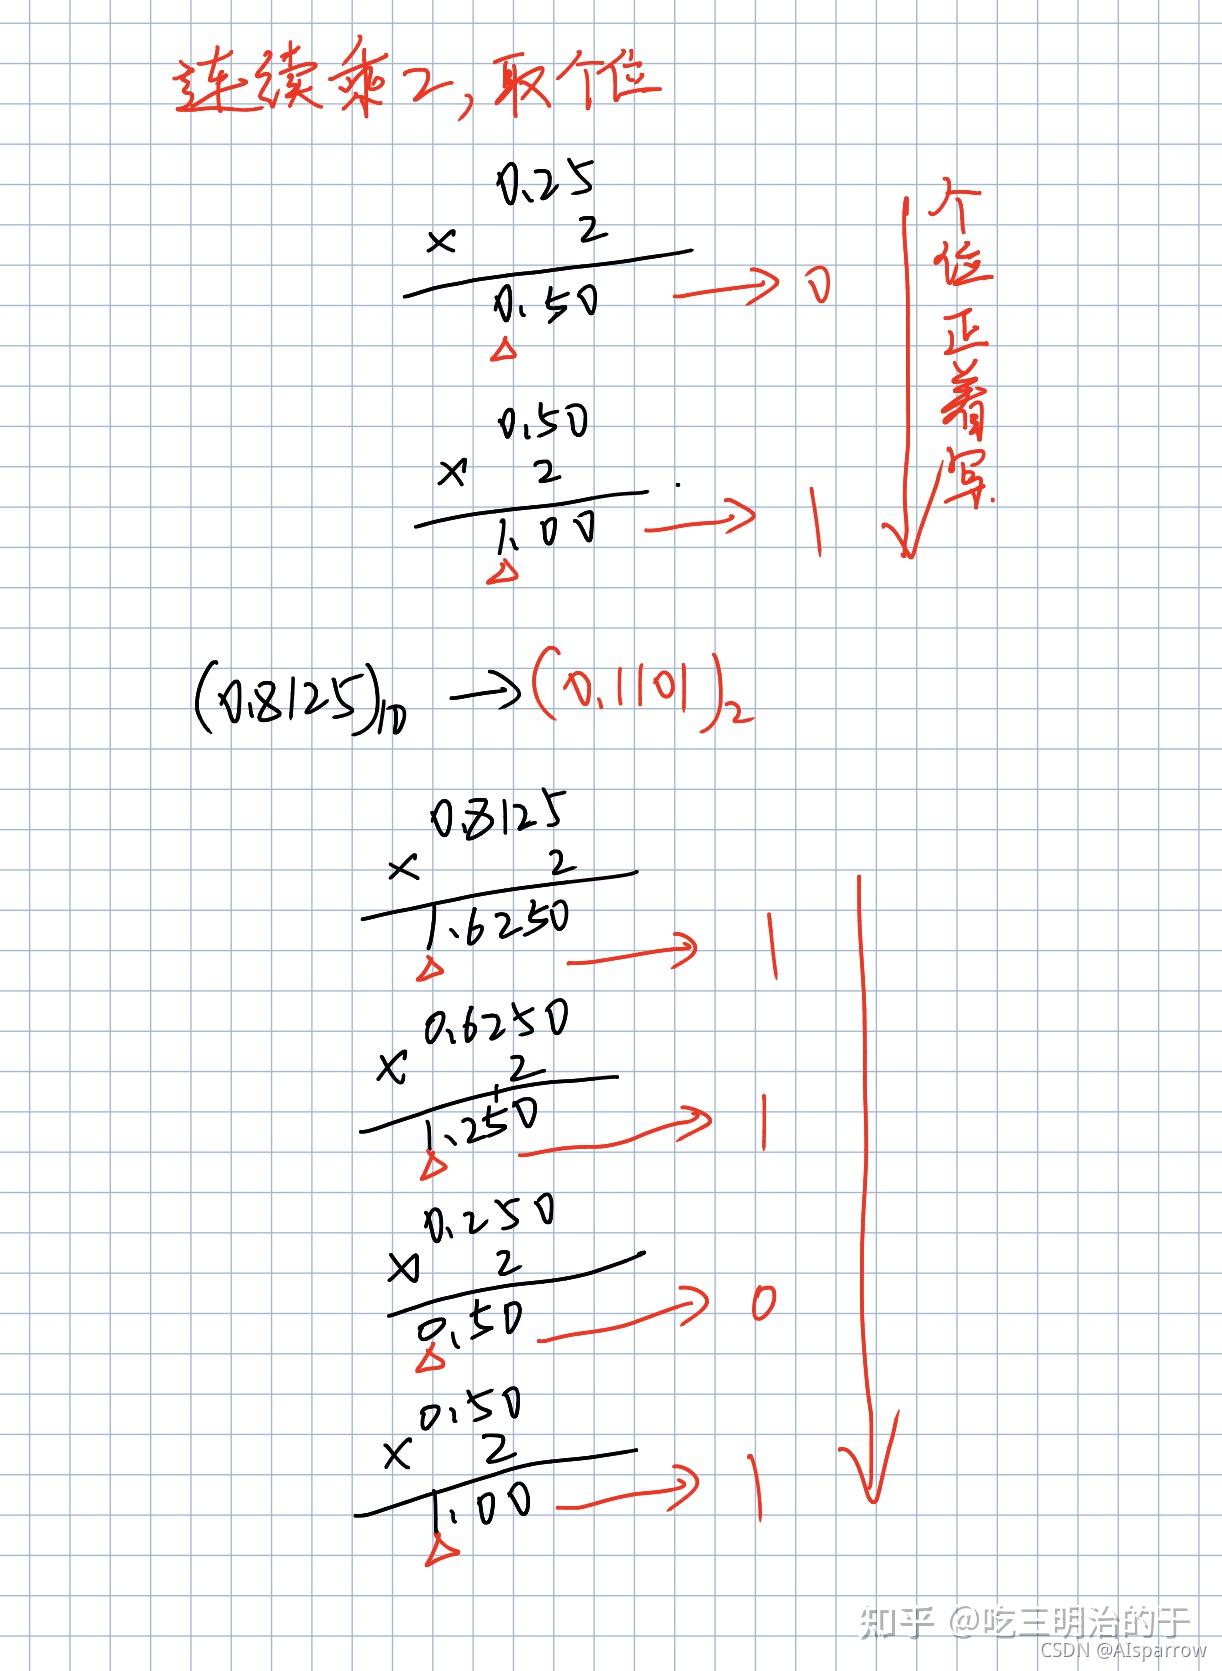 连续乘2,取个位
0.25
× 2
0.50 → 0
0.50
× 2
1.00 → 1
个位正着写.
(0.8125)10 → (0.1101)2
0.8125
× 2
1.6250 → 1
0.6250
× 2
1.250 → 1
0.250
× 2
0.50 → 0
0.50
× 2
1.00 → 1
知乎 @吃三明治的于
CSDN @AIsparrow